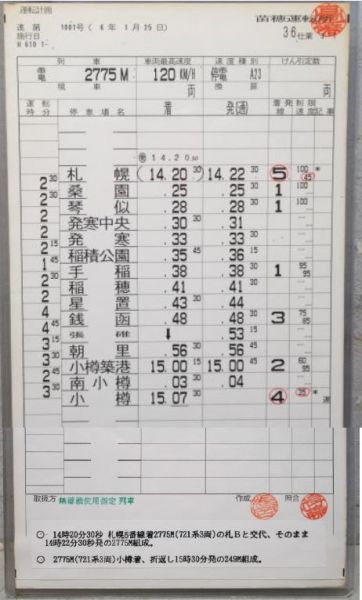 運転計画
苗穂運転所
達 第 1001号 ( 6年 1月25日)
施行日
36仕業
列車 車両最高速度 速度種別 けん引定数
電 2775M 120KM/H 停電 A23 両
機車 換算 両
運転時分 停車場名 着 発(通) 着発線 制限速度 記事
14.20 30
札幌 (14.20 30 14.22 30 5 100 45 *
2 30 桑園 .25 .25 30 1 100
琴似 .28 .28 30 1 100
発寒中央 .30 .31
発寒 .33 .33 30
稲積公園 .35 45 .36 15
手稲 .38 30 .38 1 95 95
稲穂 .41 .41 30
星置 .43 30 .44
銭函 .48 .48 30 3 75 85
張碓 ↓ .53 15
朝里 .56 .56 30
小樽築港 15.00 15.00 45 2 60 95
南小樽 .03 30 .04
3 小樽 15.07 4 25 *
取扱方 無線機使用指定 列車
作成 照合
○ 14時20分30秒 札幌5番線着2775M(721系3両)の札Bと交代、そのまま
14時22分30秒発の2775M組成。
○ 2775M(721系3両)小樽着、折返し15時30分発の249M組成。